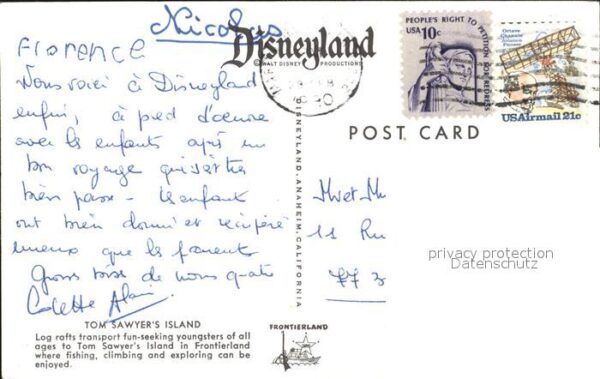 Nicolas
Florence
Disneyland
© WALT DISNEY PRODUCTIONS
Nous voici à Disneyland
enfin, à pied d'œuvre
avec les enfants après un
bon voyage qui s'est très
bien passé - les enfants
ont bien dormi et récupéré
mieux que les parents
Grosse bise de nous quatre
Colette Alain
TOM SAWYER'S ISLAND
Log rafts transport fun-seeking youngsters of all
ages to Tom Sawyer's Island in Frontierland
where fishing, climbing and exploring can be
enjoyed.
DISNEYLAND - ANAHEIM, CALIFORNIA
FRONTIERLAND
PEOPLE'S RIGHT TO PETITION FOR REDRESS
USA 10c
Octave
Chanute
Aviation
Pioneer
USAirmail 21c
POST CARD
M et M
11 Ru
77 3
privacy protection
Datenschutz